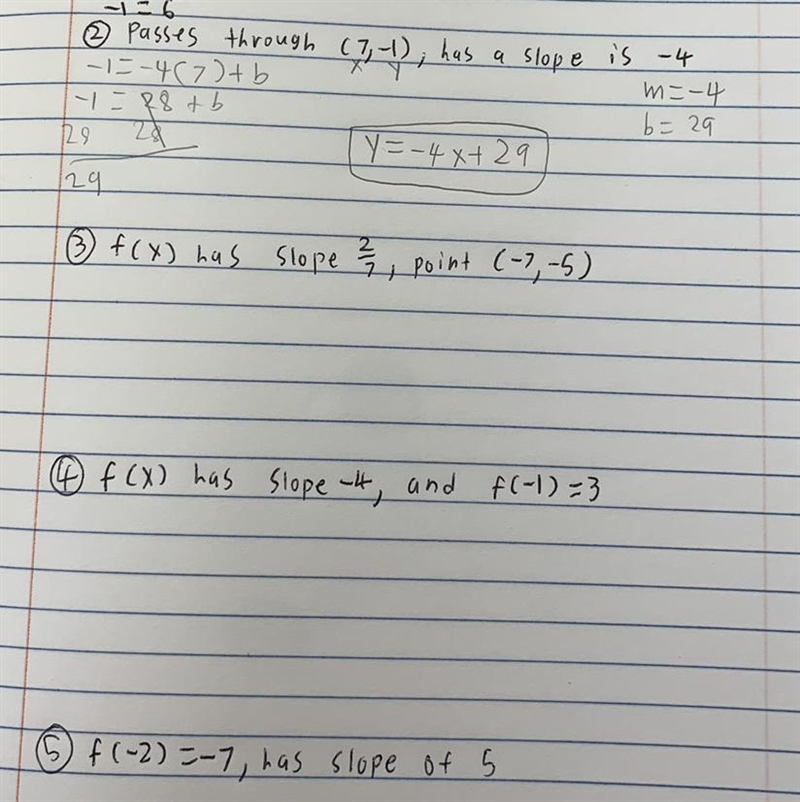 -1 = 6
② Passes through (7,-1), has a slope is -4
x y
-1 = -4(7) + b
m = -4
-1 = 28 + b
b = 29
28 28
y = -4x + 29
29
③ f(x) has slope 2/7, point (-7,-5)
④ f(x) has slope -4, and f(-1) = 3
⑤ f(-2) = -7, has slope of 5